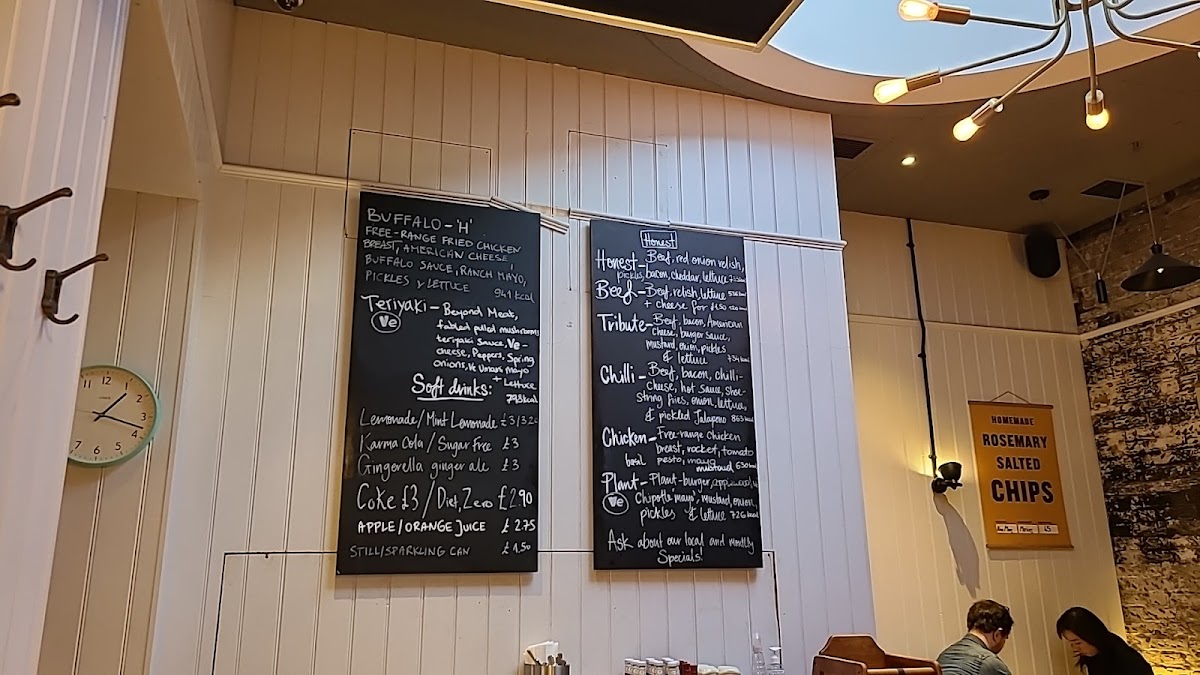 BUFFALO - 'H'
FREE-RANGE FRIED CHICKEN
BREAST, AMERICAN CHEESE,
BUFFALO SAUCE, RANCH MAYO,
PICKLES & LETTUCE
941 kcal
Teriyaki - Beyond Meat,
Ve
pulled mushrooms
teriyaki sauce, Ve-
cheese, Peppers, Spring
onions, Ve Umami mayo
+ Lettuce
793kcal
Soft drinks:
Lemonade/Mint Lemonade £3/3.2
Karma Cola / Sugar Free £3
Gingerella ginger ale £3
Coke £3 / Diet, Zero £2.90
APPLE/ORANGE JUICE £2.75
STILL/SPARKLING CAN £1.50
Honest
Honest - Beef, red onion relish,
pickles, bacon, cheddar, lettuce
Beef - Beef, relish, lettuce
+ cheese for £1.50
Tribute - Beef, bacon, American
cheese, burger sauce,
mustard, onion, pickles
& lettuce 734 kcal
Chilli - Beef, bacon, chilli-
cheese, hot sauce, shoe-
string fries, onion, lettuce,
& pickled Jalapeno 863 kcal
Chicken - Free-range chicken
breast, rocket, tomato
basil pesto, mayo
mustard 630 kcal
Plant - Plant-burger,
Ve
Chipotle mayo, mustard, onion,
pickles & lettuce 726 kcal
Ask about our local and monthly
Specials!
12
1
2
3
4
5
6
7
11
HOMEMADE
ROSEMARY
SALTED
CHIPS